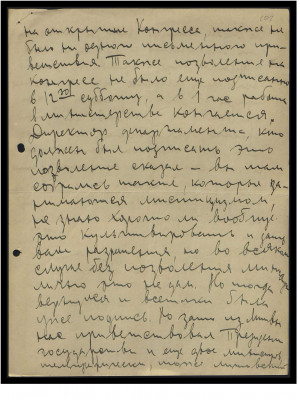 на открытие Конгресса, также не
было ни одного письменного при-
ветствия. Также позволения на
конгресс не было ещё подписано
в 12 субботу, а в 1 час работа
в министерстве кончается.
Директор департамента, кто
должен был подписать это
позволение сказал – вы там
собрались такие, которые за-
нимаются мистицизмом,
не знаю хорошо ли вообще
это культивировать и дать
вам разрешения, но во всяком
случае без позволения мини
лично это не дам. Но тогда
вернулся и всетаки была
уже подпись. Но зато из Литвы
нас приветствовал Президент
государства и еще двое министров,
телеграфически